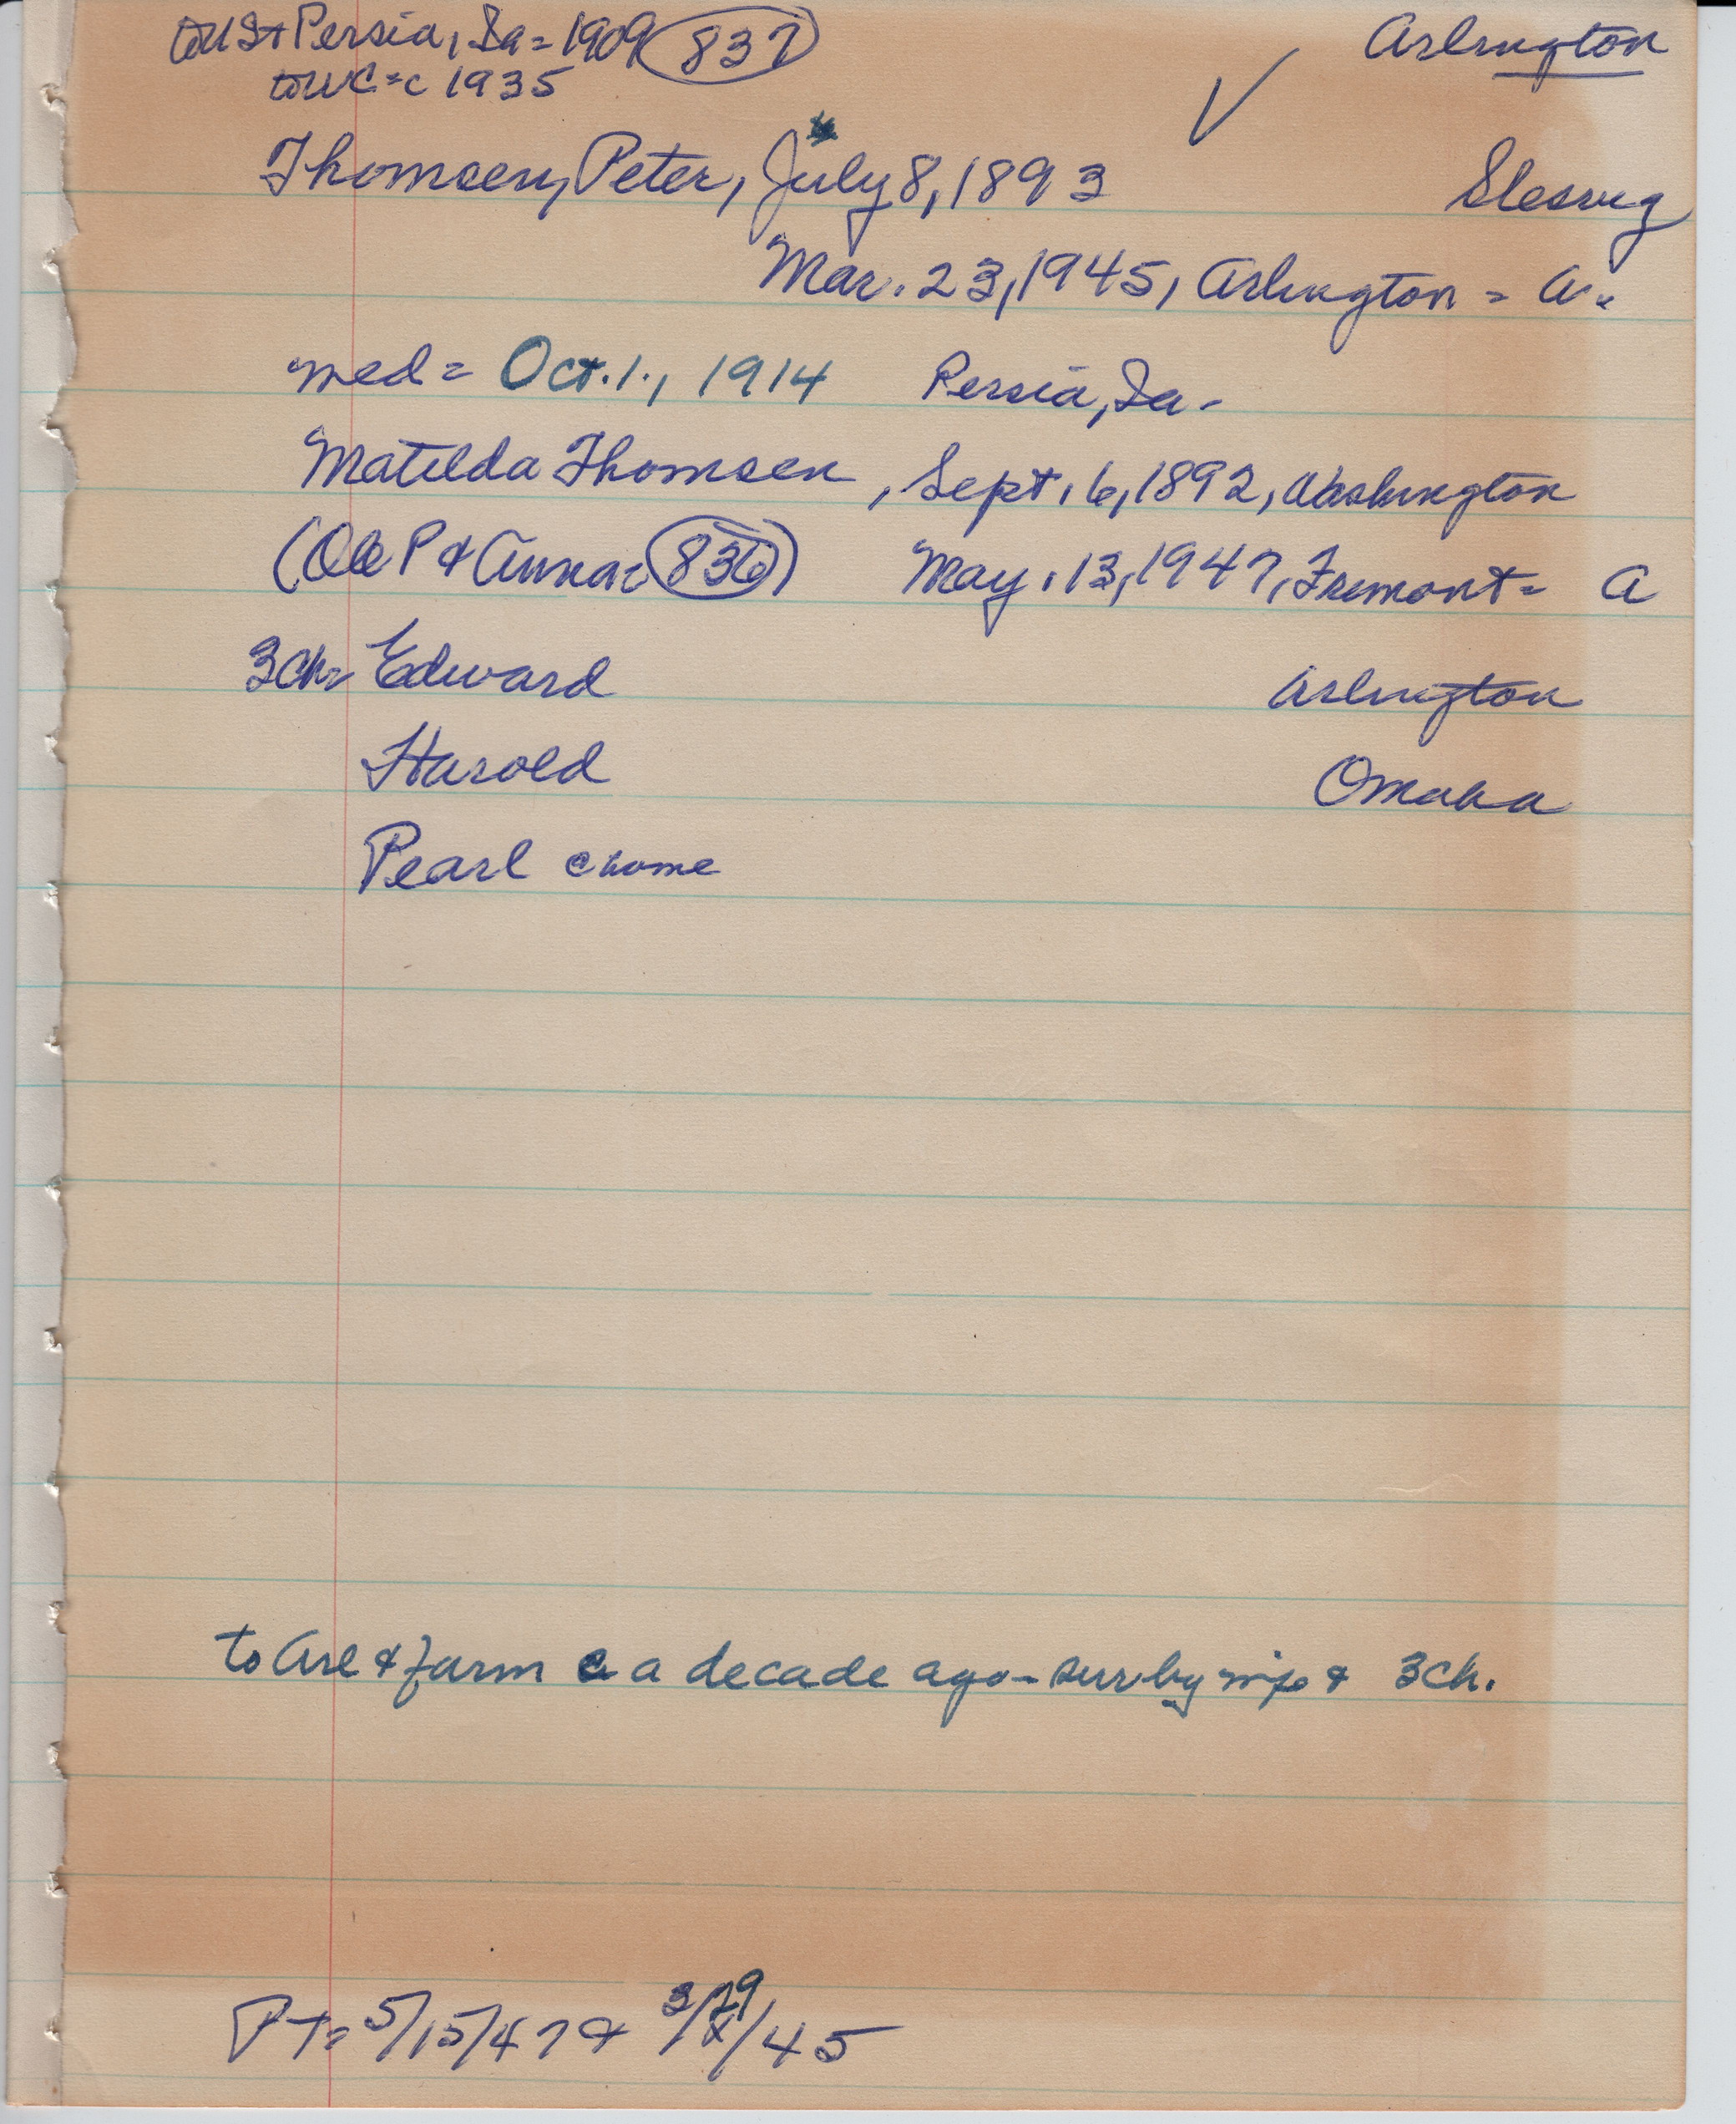 to US & Persia, Ia = 1909 837 Arlington
to WC = c 1935
Thomsen, Peter, July 8, 1893 Slesvig
Mar. 23, 1945, Arlington = A.
med = Oct. 1., 1914 Persia, Ia -
Matilda Thomsen, Sept. 6, 1892, Washington
(Ole P & Anna = 836) May. 13, 1947, Fremont = A
3ch = Edward Arlington
Harold Omaha
Pearl @ home
to Arl & farm c a decade ago - surv by wife & 3 ch.
PT = 5/15/47 & 3/29/45